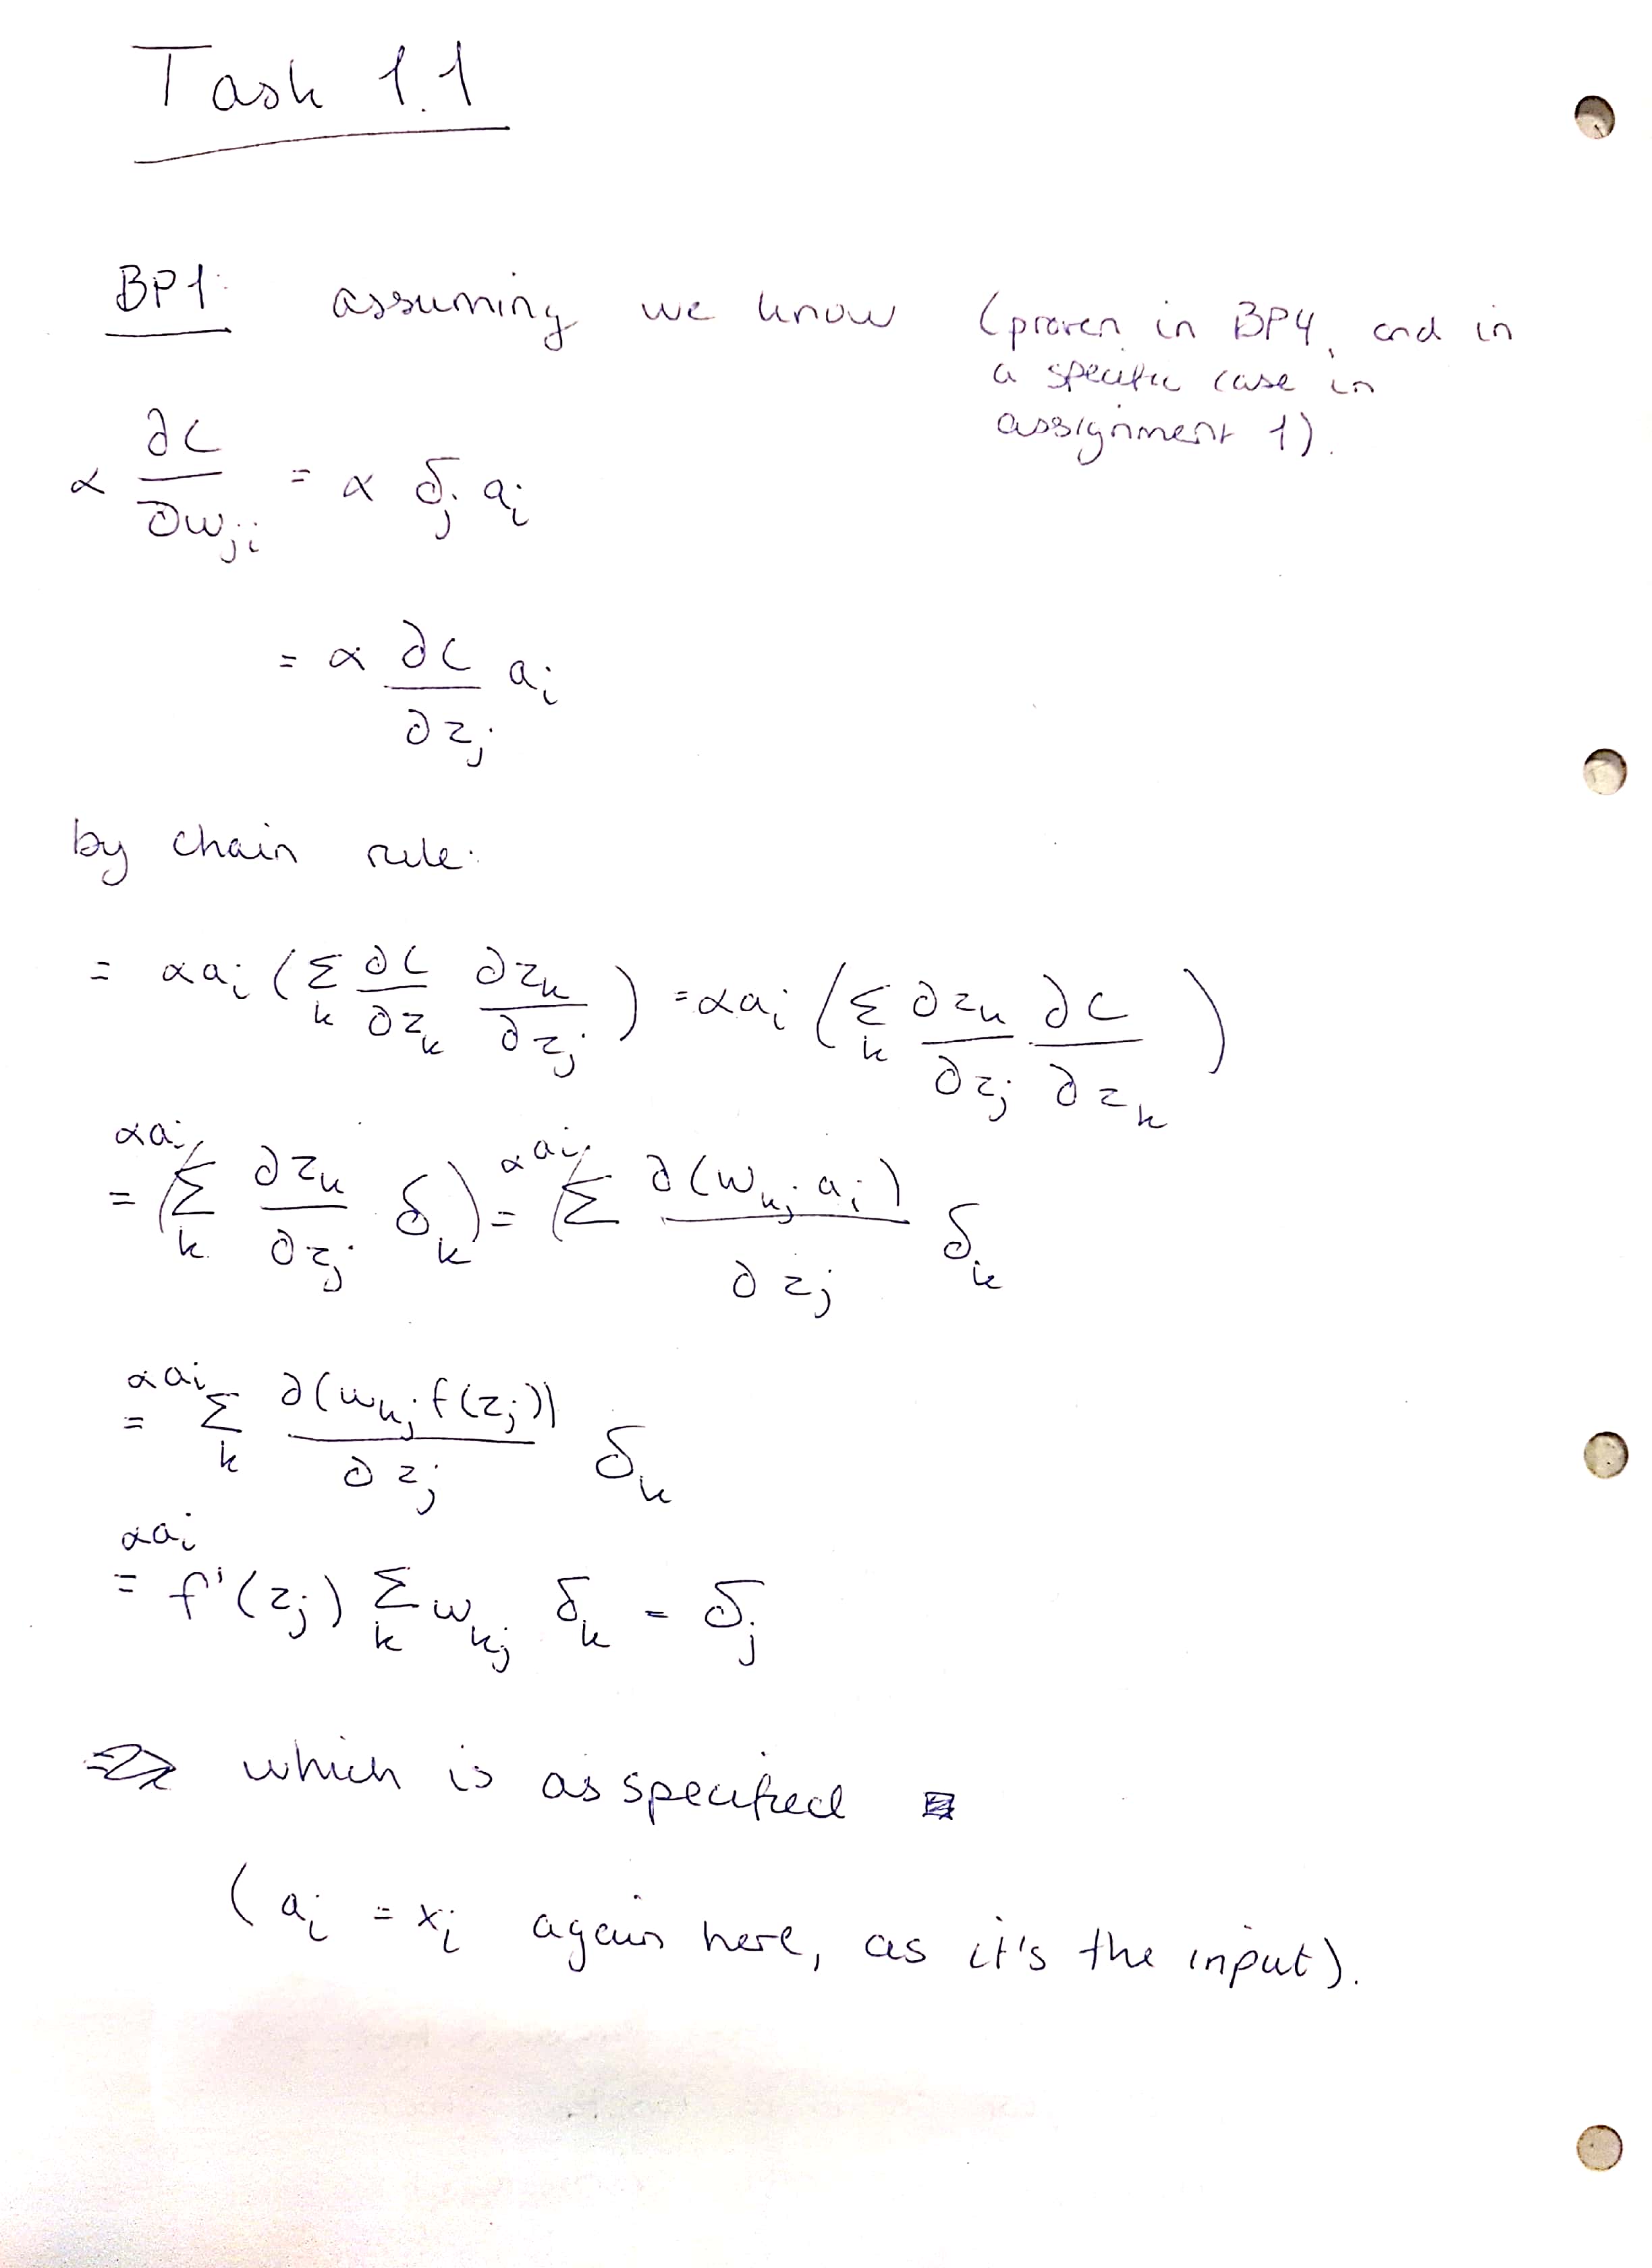 Task 1.1
BP1: assuming we know (proven in BP4, and in
a specific case in
assignment 1).
α ∂C/∂w_ji = α δ_j a_i
= α ∂C/∂z_j a_i
by chain rule:
= α a_i (Σ_k ∂C/∂z_k ∂z_k/∂z_j) = α a_i (Σ_k ∂z_k/∂z_j ∂C/∂z_k)
= α a_i (Σ_k ∂z_k/∂z_j δ_k) = α a_i (Σ ∂(w_kj a_j)/∂z_j δ_k
= α a_i Σ_k ∂(w_kj f(z_j))/∂z_j δ_k
= α a_i f'(z_j) Σ_k w_kj δ_k = δ_j
⇒ which is as specified
(a_i = x_i again here, as it's the input).